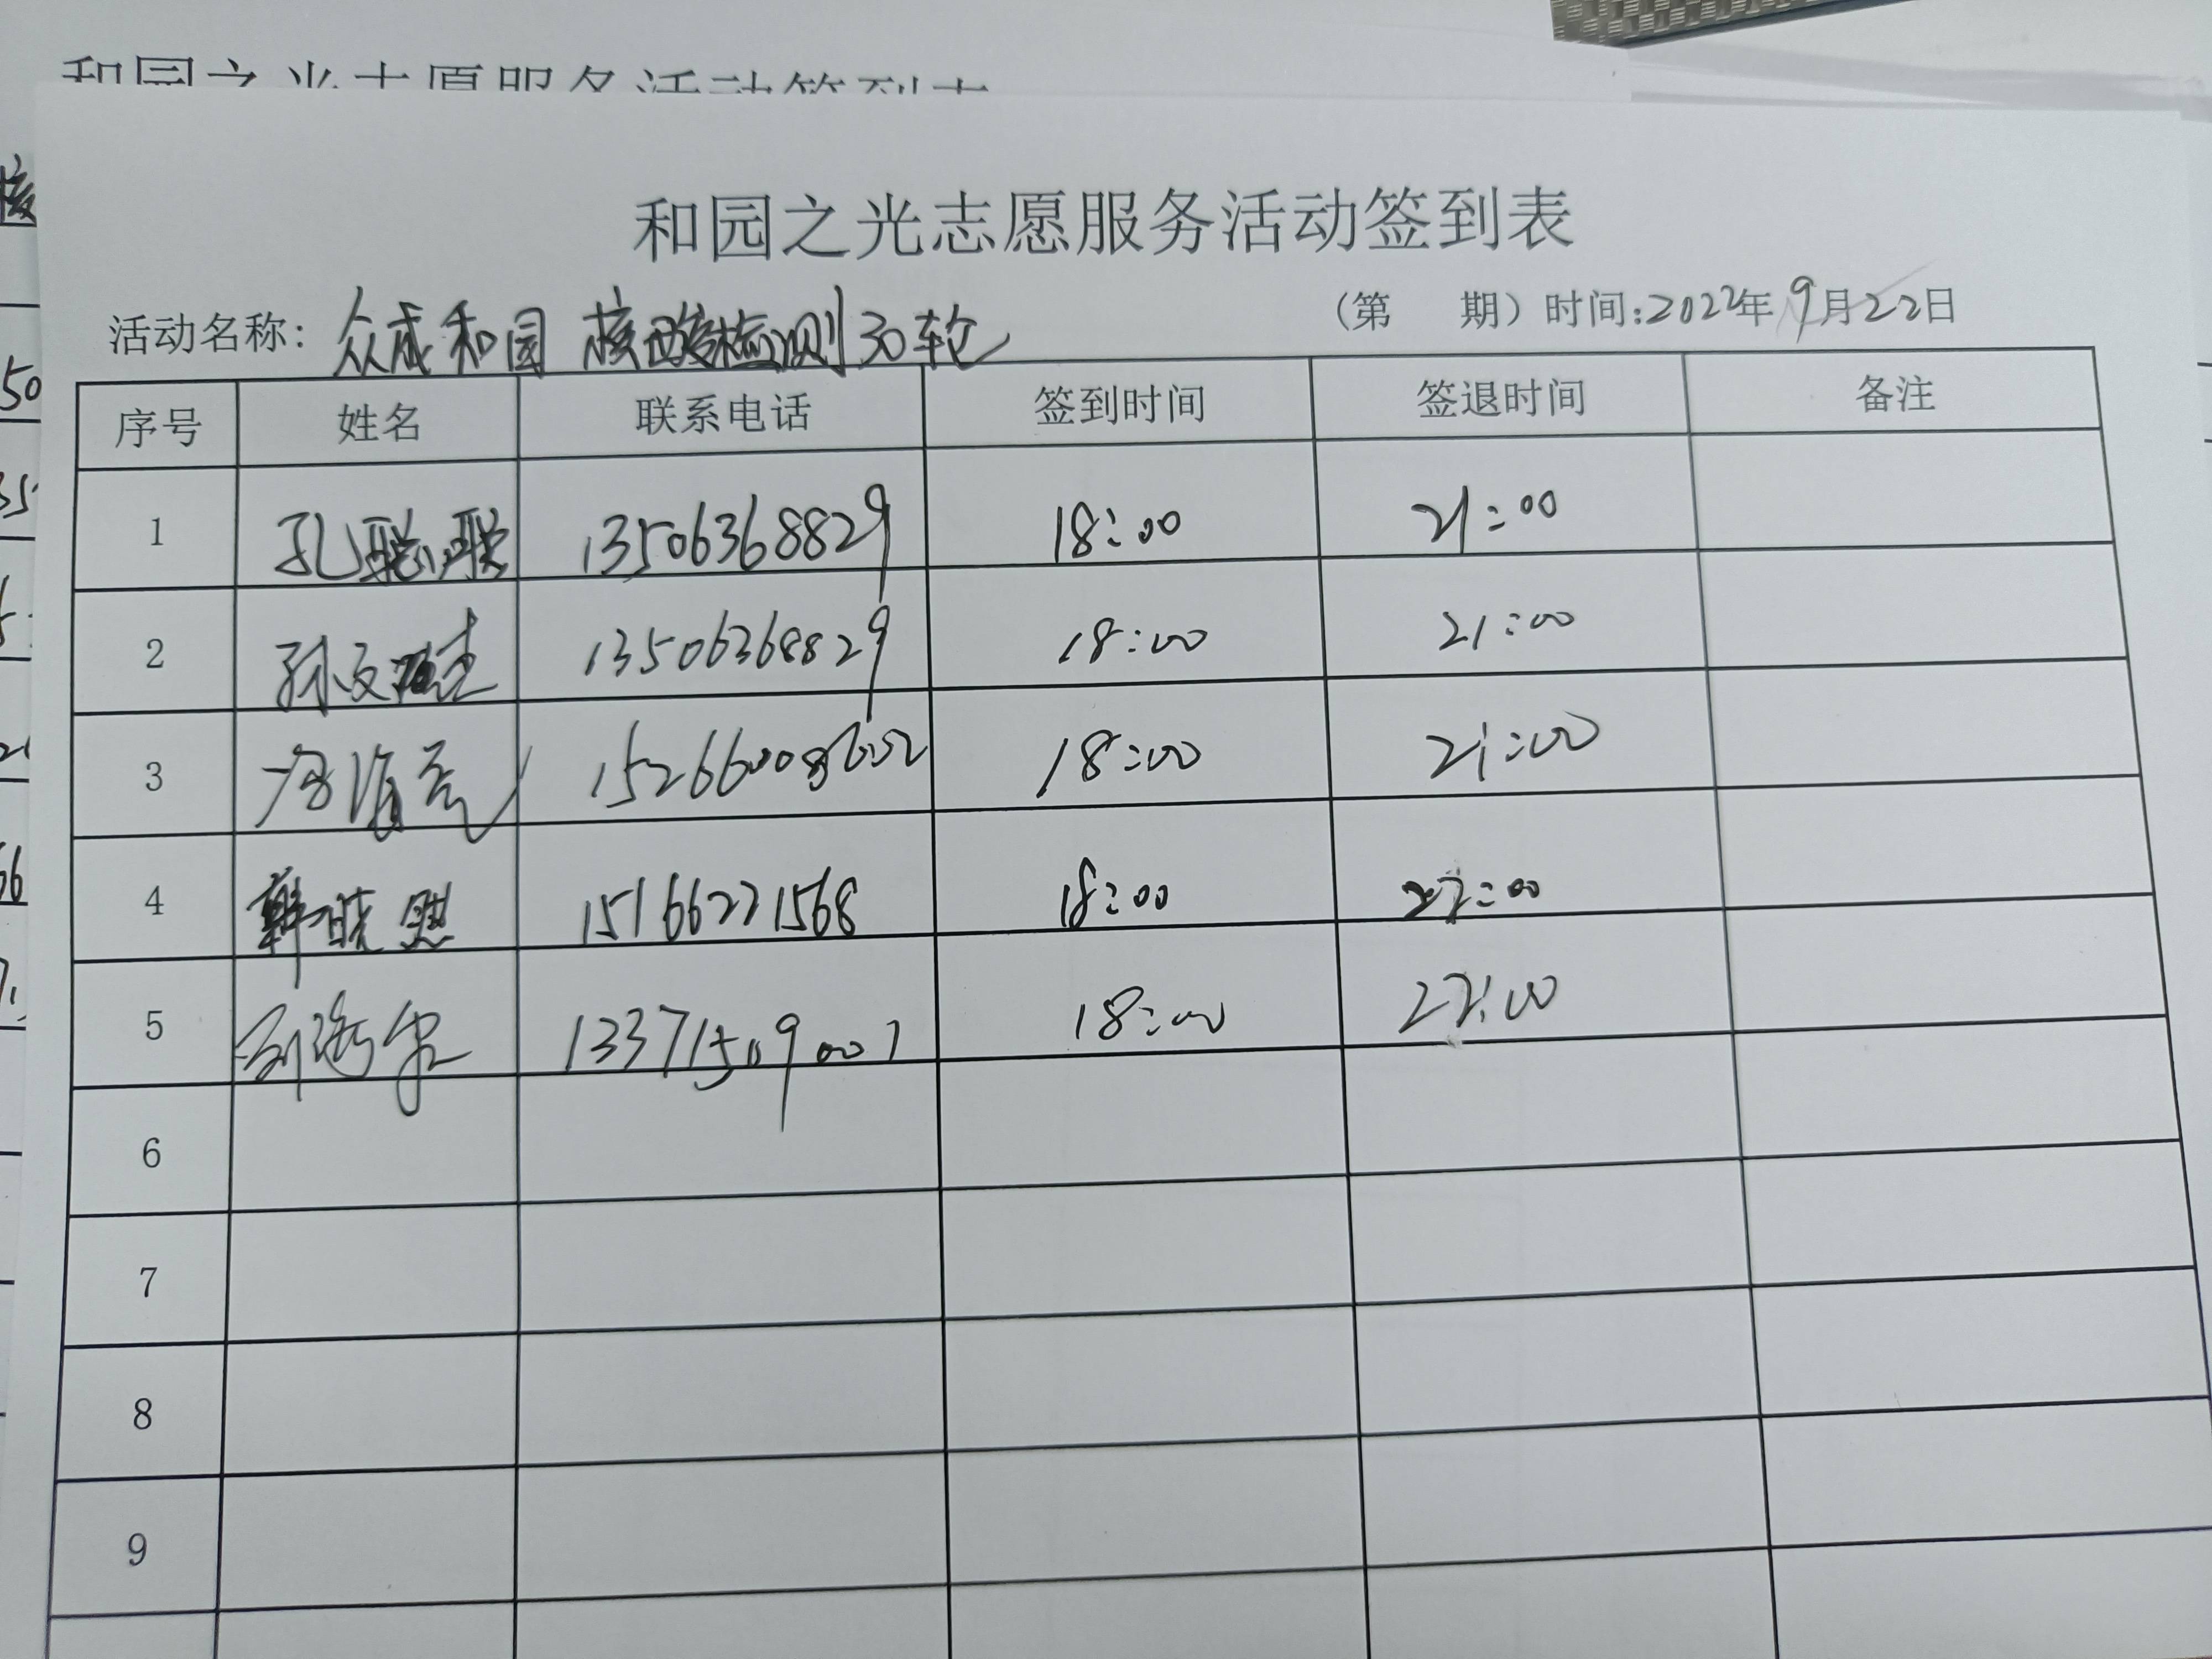 和园之光志愿服务活动签到表
和园之光志愿服务活动签到表
活动名称：众成和园 核酸检测30轮 （第 期）时间：2022年9月22日
序号 姓名 联系电话 签到时间 签退时间 备注
1 孔聪聪 13506368829 18:00 21:00
2 孙文 13506368829 18:00 21:00
3 18:00 21:00
4 韩晓 15166221568 18:00 22:00
5 18:00 22:00
6
7
8
9